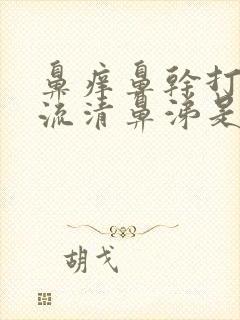 鼻痒鼻幹打
流清鼻涕是
胡戈